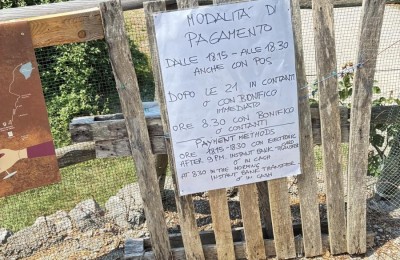 MODALITÀ DI
PAGAMENTO
DALLE 18.15 - ALLE 18.30
ANCHE CON POS
DOPO LE 21 IN CONTANTI
O CON BONIFICO
IMMEDIATO
ORE 8.30 CON BONIFICO
O CONTANTI
PAYMENT METHODS
ORE 18.15 - 18.30 WITH ELECTRONIC
CARD
AFTER 9 PM. INSTANT BANK TRANSFER
O IN CASH
AT 8.30 IN THE
INSTANT BANK TRANSFER
O IN CASH